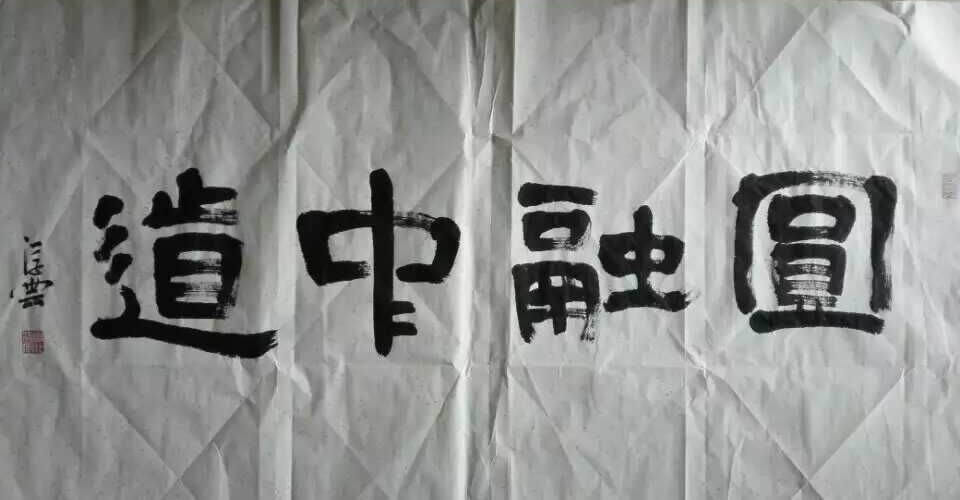 圓融中道